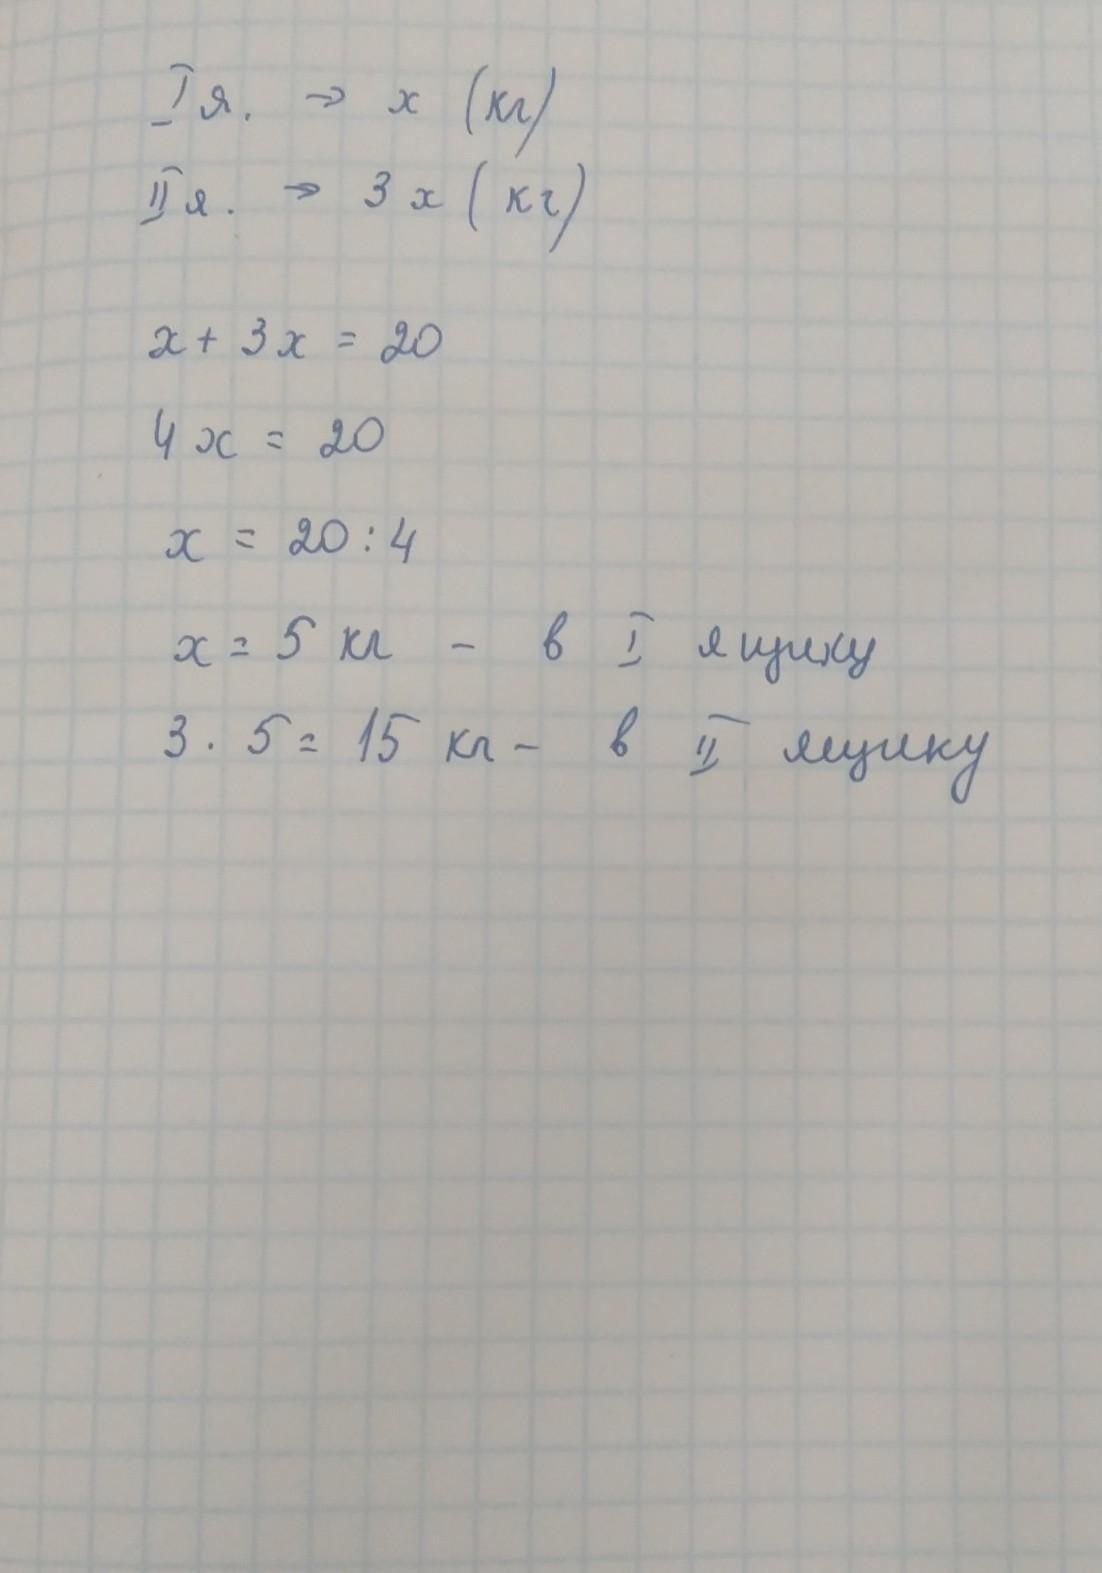 I я. → x (кг)
II я. → 3x (кг)
x + 3x = 20
4x = 20
x = 20 : 4
x = 5 кг - в I ящику
3 · 5 = 15 кг - в II ящику